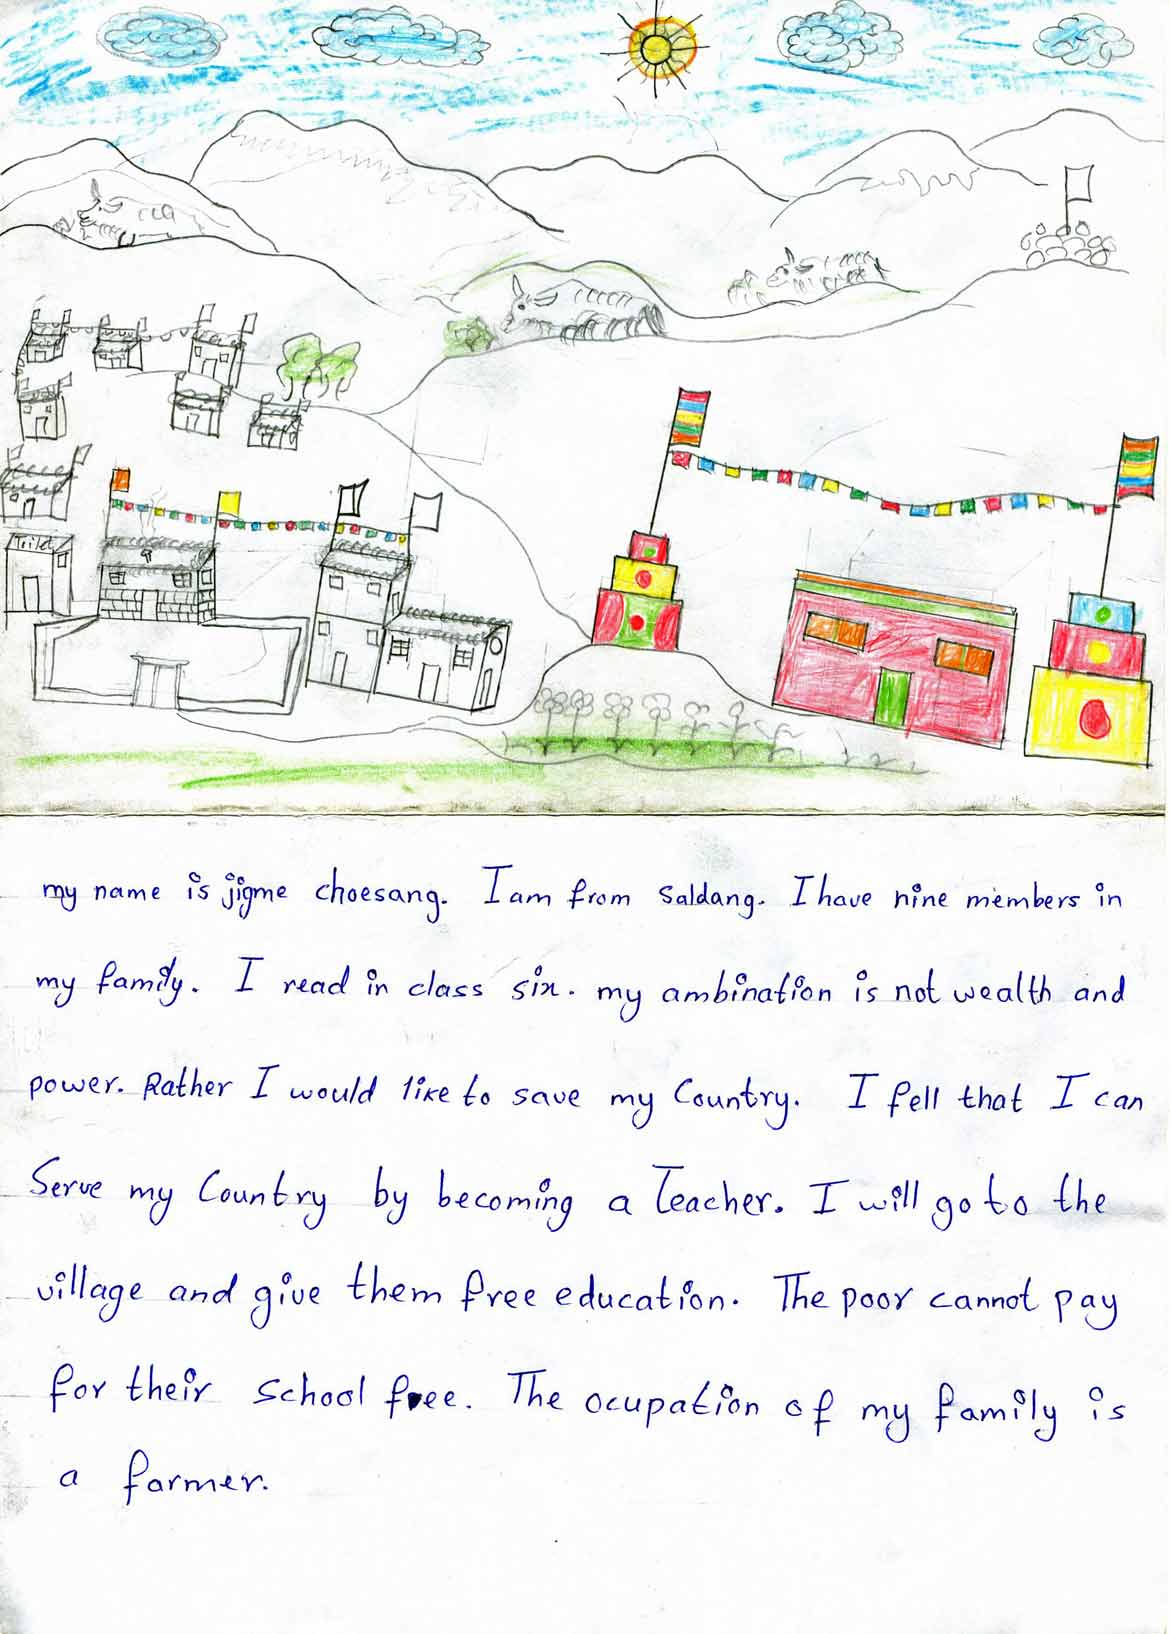 Toilet
my name is jigme choesang. I am from Saldang. I have nine members in
my family. I read in class six. my ambination is not wealth and
power. Rather I would like to save my Country. I fell that I can
Serve my Country by becoming a Teacher. I will go to the
village and give them free education. The poor cannot pay
for their school free. The ocupation of my family is
a farmer.